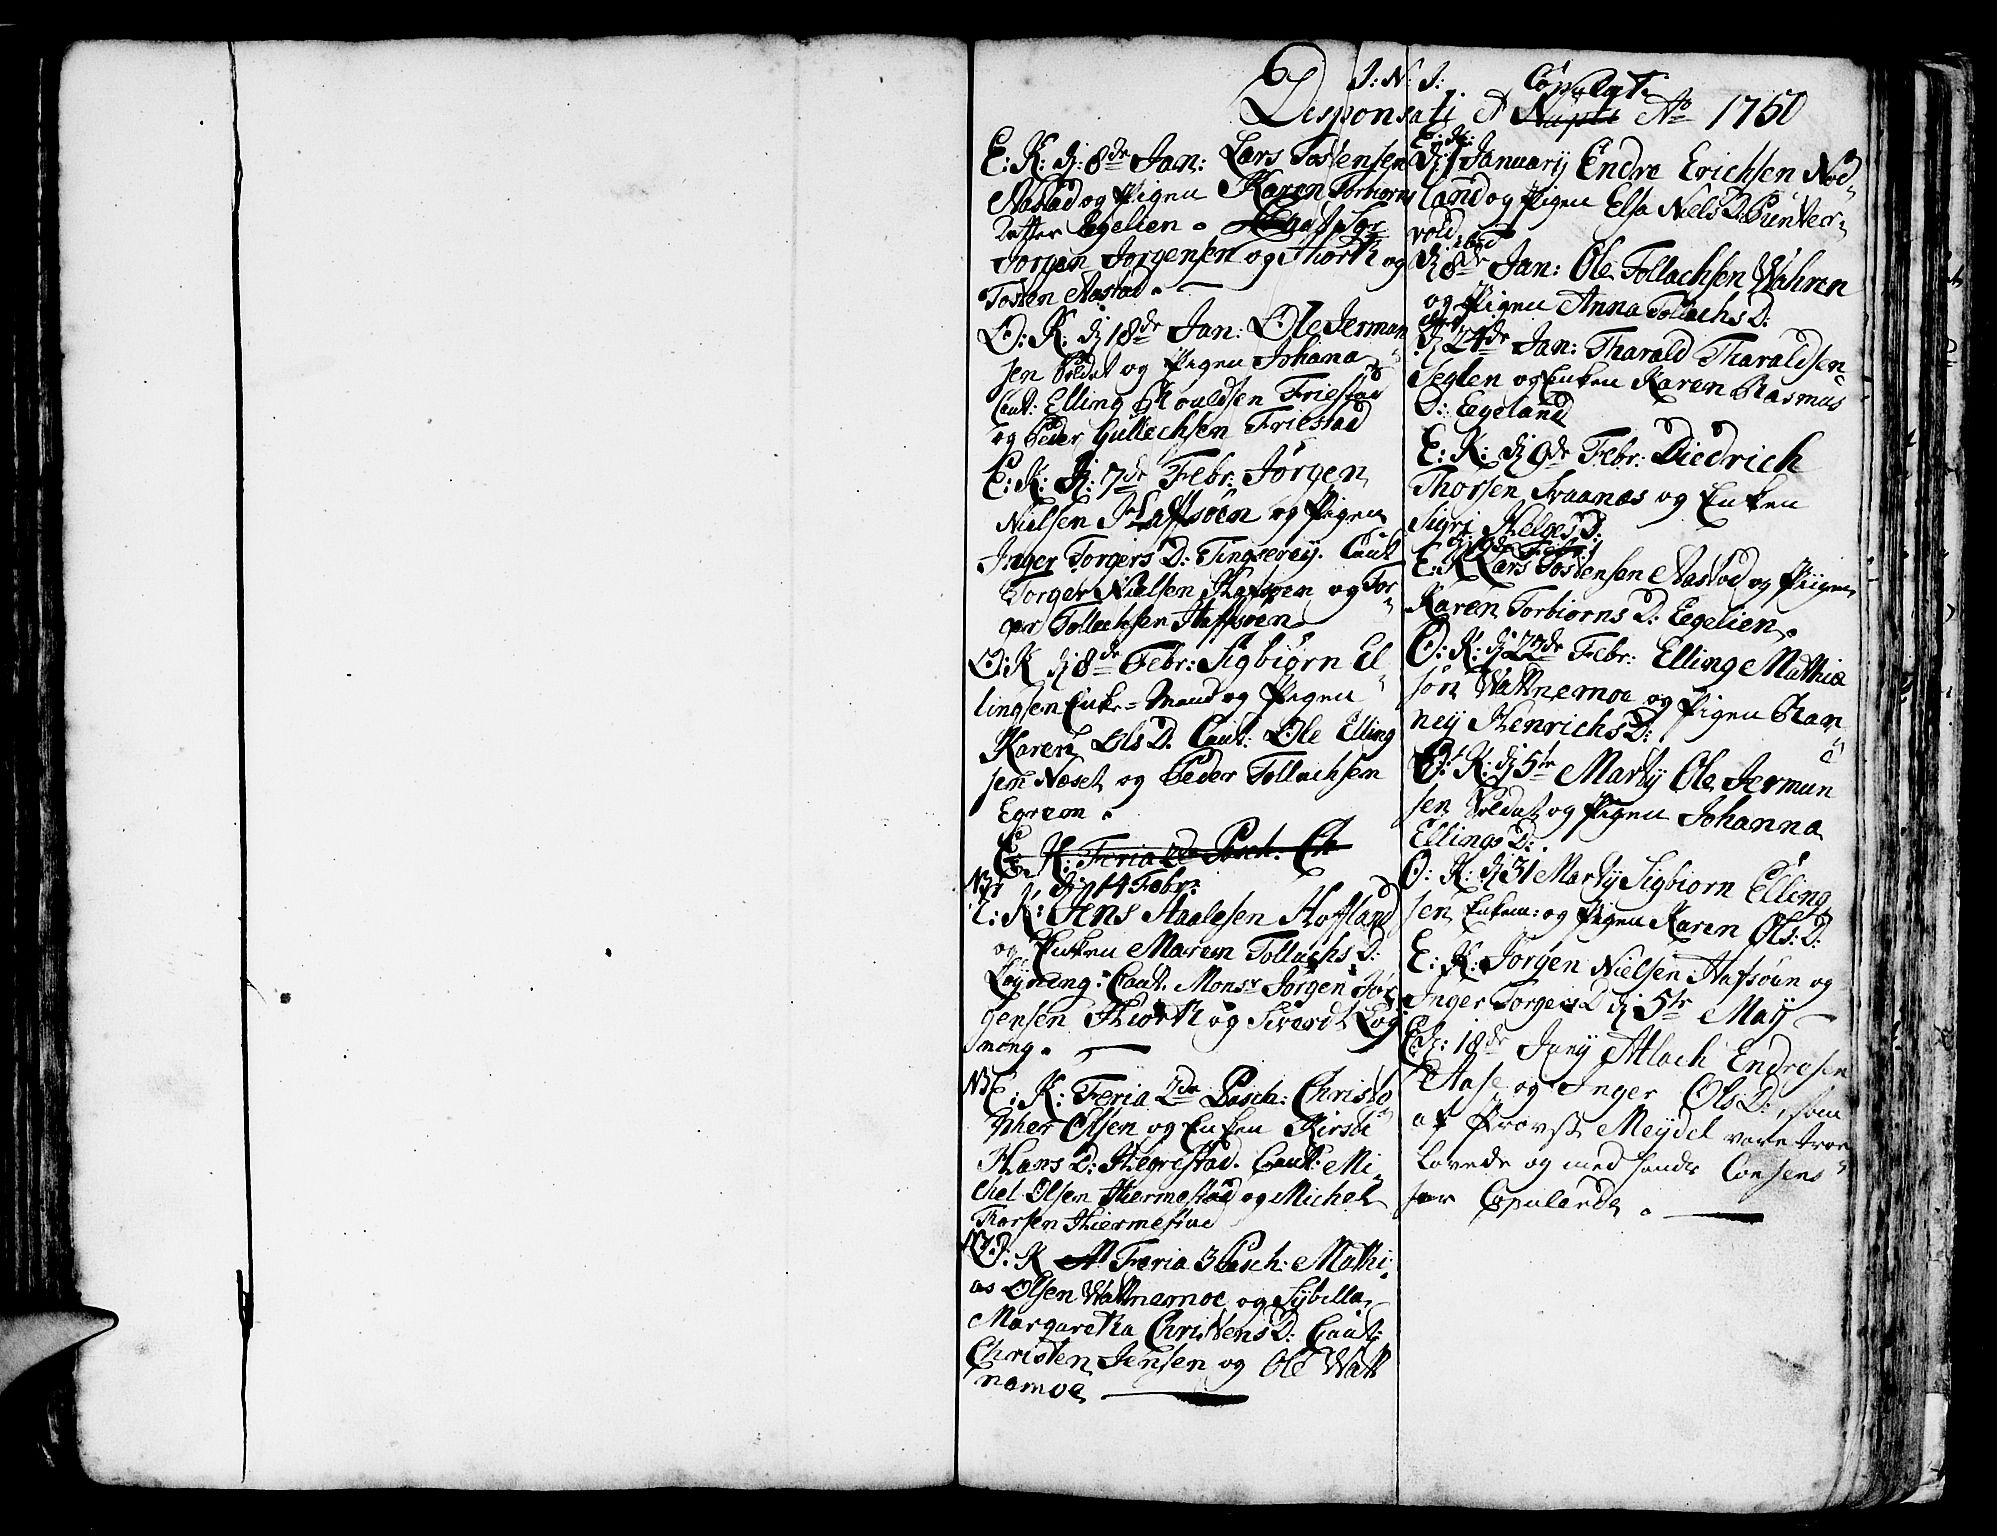 J: N: J:
Desponsati et Nupti Copulat. Ao 1750
E: K: d: 8de Jan: Lars Tostensen
Aastad og Pigen Karen Torbiørns
Datter Egelien.
Jørgen Jørgensen og Hiorth og
Tosten Aastad.
O: K: d 18de Jan: Ole Jerman
sen Soldat og Pigen Johana
Caut: Elling Rouldsen Friestad
og Peder Gullechsen Friestad
E: K: d: 7de Febr: Jørgen
Nielsen Haffsøen og Pigen
Inger Torgers D: Tingserey. Caut
Torger Nielsen Hafsøen og Tor
ger Tollachsen Haffsøen
O: K d 8de Febr: Sigbiørn El
lingsen Enke-Mand og Pigen
Karen Ols D. Caut: Ole Elling
sen Næset og Peder Tollachsen
Egreon.
E. K: Feria 2de Pasch. Ch
NB d 14 Febr:
E: K: Jens Aaalesen Hoffland
og Enken Maren Tollachs D:
Løyning: Caut. Monsr Jørgen Jør
gensen Hiorth og Siverdt Løg
ning.
NB E: K: Feria 2de Pasch: Christo
pher Olsen og Enken Kirste
Hans D: Hegrestad. Caut: Mi
chel Olsen Hiermestad og Michel
Thorsen Hiermestad
NB O: K Feria 3 Pasch: Mathi
as Olsen Wattnemoe og Sybilla
Margaretha Christens D: Caut:
Christen Jensen og Ole Watt
nemoe
E: K:
d 1 January Endre Erichsen Nod
land og Pigen Elsa Niels D: Puntver
vold
ibid
d 8de Jan: Ole Tollachsen Wahren
og Pigen Anna Tollachs D.
ibid
d 24de Jan: Tharald Tharaldsen
Seglen og Enken Karen Rasmus
D: Egeland
E: K: d 9de Febr: Diedrich
Thorsen Svaanes og Enken
Sigri Helges D:
E: K Lars Tostensen Aastad og Pigen
Karen Torbiørns D: Egelien.
O: K: d 22de Febr: Elling Mathia
sen Wattnemoe og Pigen Ran
ney Henrichs D:
O: K: d 5te Marty Ole Jermun
sen Soldat og Pigen Johanna
Ellings D:
O: K: d 31 Marty Sigbiørn Elling
sen Enkem: og Pigen Karen Ols: D:
E: K: Jørgen Nielsen Hafsøen og
Inger Torgers D d 5te May
E K: 18de Juny Atlach Endresen
Aase og Inger Ols D:, som
af Provst Meydel vare troe
lovede og med hands Consens
her Copulerde.